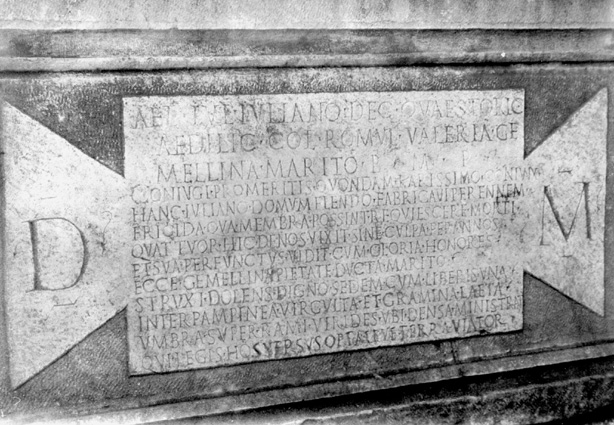 D M
AEL · IVLIANO · DEC · QVAESTORIC
AEDILIC · COL · ROMVL · VALERIA · GE
MELLINA · MARITO
CONIVGI · PROMERITIS · QVONDAM · KARISSIMO
HANC · IVLIAN · DOMVM · FLENDO · FABRICAVI · PERENNEM
FRIGIDA · QVA · MEMBRA · POSSINT · REQVIESCERE · MORTI
QVATTVOR · HIC · DENOS · VIXIT · SINE · CVLPA · PER · ANNOS
ET · SVA · PERFVNCTVS · VIDIT · CVM · GLORIA · HONORES
ECCE · GEMELLINA · PIETATE · DVCTA · MARITO
STRVXI · DOLENS · DIGNO · SEDEM · CVM · LIBERIS · VNA
INTER · PAMPINEA · VIRGVLTA · ET · GRAMINA · LAETA
VMBRA · SVPER · RAMI · DES · VBI · DENSA · MINISTRA
QVI · LEGIS · HOS · VERSVS · OPTA · LEVE · TERRA · VIATOR